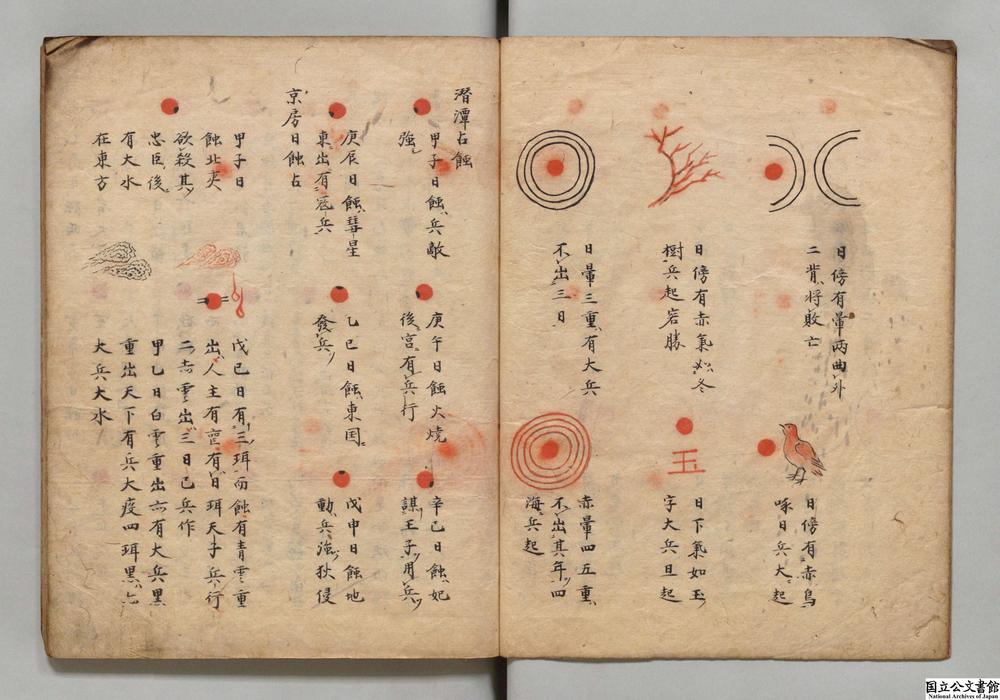 日傍有暈兩曲外
二背將敗亡
日傍有赤氣如冬
樹兵起客勝
日暈三重有大兵
不出三日
日傍有赤烏
啄日兵大起
玉
日下氣如玉
字大兵旦起
赤暈四五重
不出其年四
海兵起
潛潭占蝕
甲子日蝕兵敵
強
庚辰日蝕彗星
東出有兵
京房日蝕占
甲子日
蝕北夷
欲殺其
忠臣後
有大水
在東方
庚午日蝕火燒
後宮有兵行
乙巳日蝕東国
發兵
辛巳日蝕妃
謀王子用兵
戊申日蝕地
動兵強狄侵
戊巳日有三珥而蝕有青雲重
出人主有有日珥天子兵行
二赤雲出三日已兵作
甲乙日白雲重出六有大兵黒
重出天下有兵大疫四珥黒
大兵大水
国立公文書館
National Archives of Japan